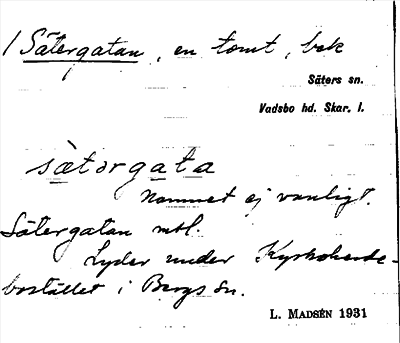 / Sätergatan, en tomt, bok
Säters sn.
Vadsbo hd. Skar. l.
sätərgata
Namnet ej vanligt.
Sätergatan mtl.
Lyder under Kyrkoherde-
bostället i Bergs sn.
L. MADSÉN 1931